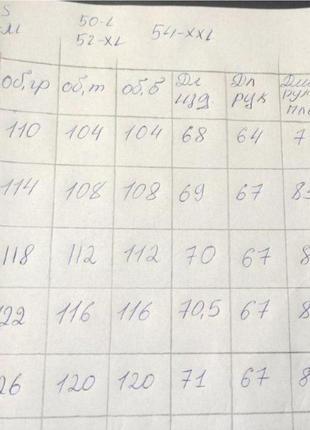 S 50-L 54-XXL
М 52-XL
об,гр об,т об,б Дл Дл
изд рук рук
110 104 104 68 64 7
114 108 108 69 67 8
118 112 112 70 67 8
22 116 116 70,5 67 8
26 120 120 71 67 8